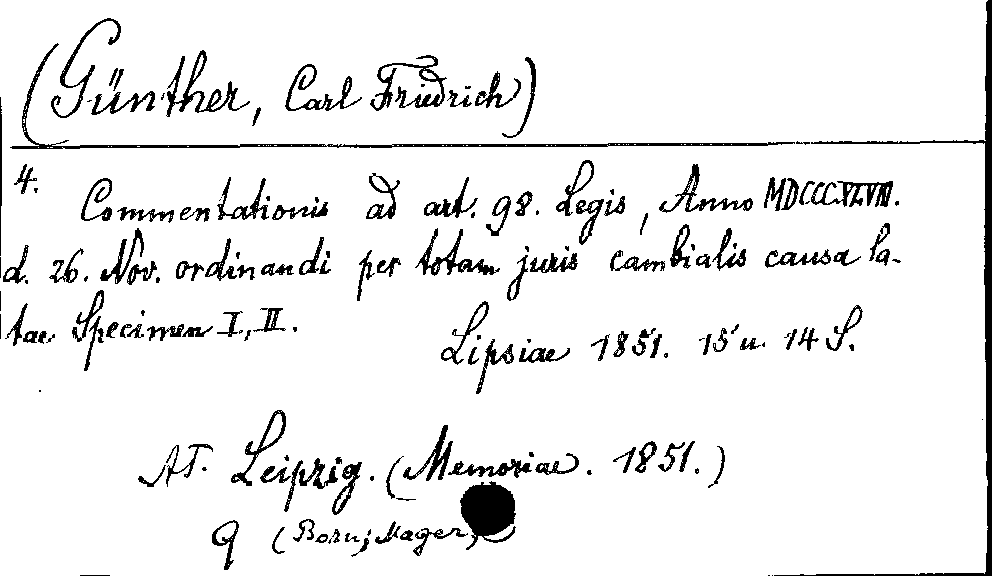 (Günther, Carl Friedrich)
4.
Commentationis ad art. 98. Legis, Anno MDCCCXLVIII.
d. 26. Nov. ordinandi per totam juris cambialis causa la-
tae Specimen I, II.
Lipsiae 1851. 15 u. 14 S.
AT. Leipzig. (Memoriae. 1851.)
q (Born; Mager)